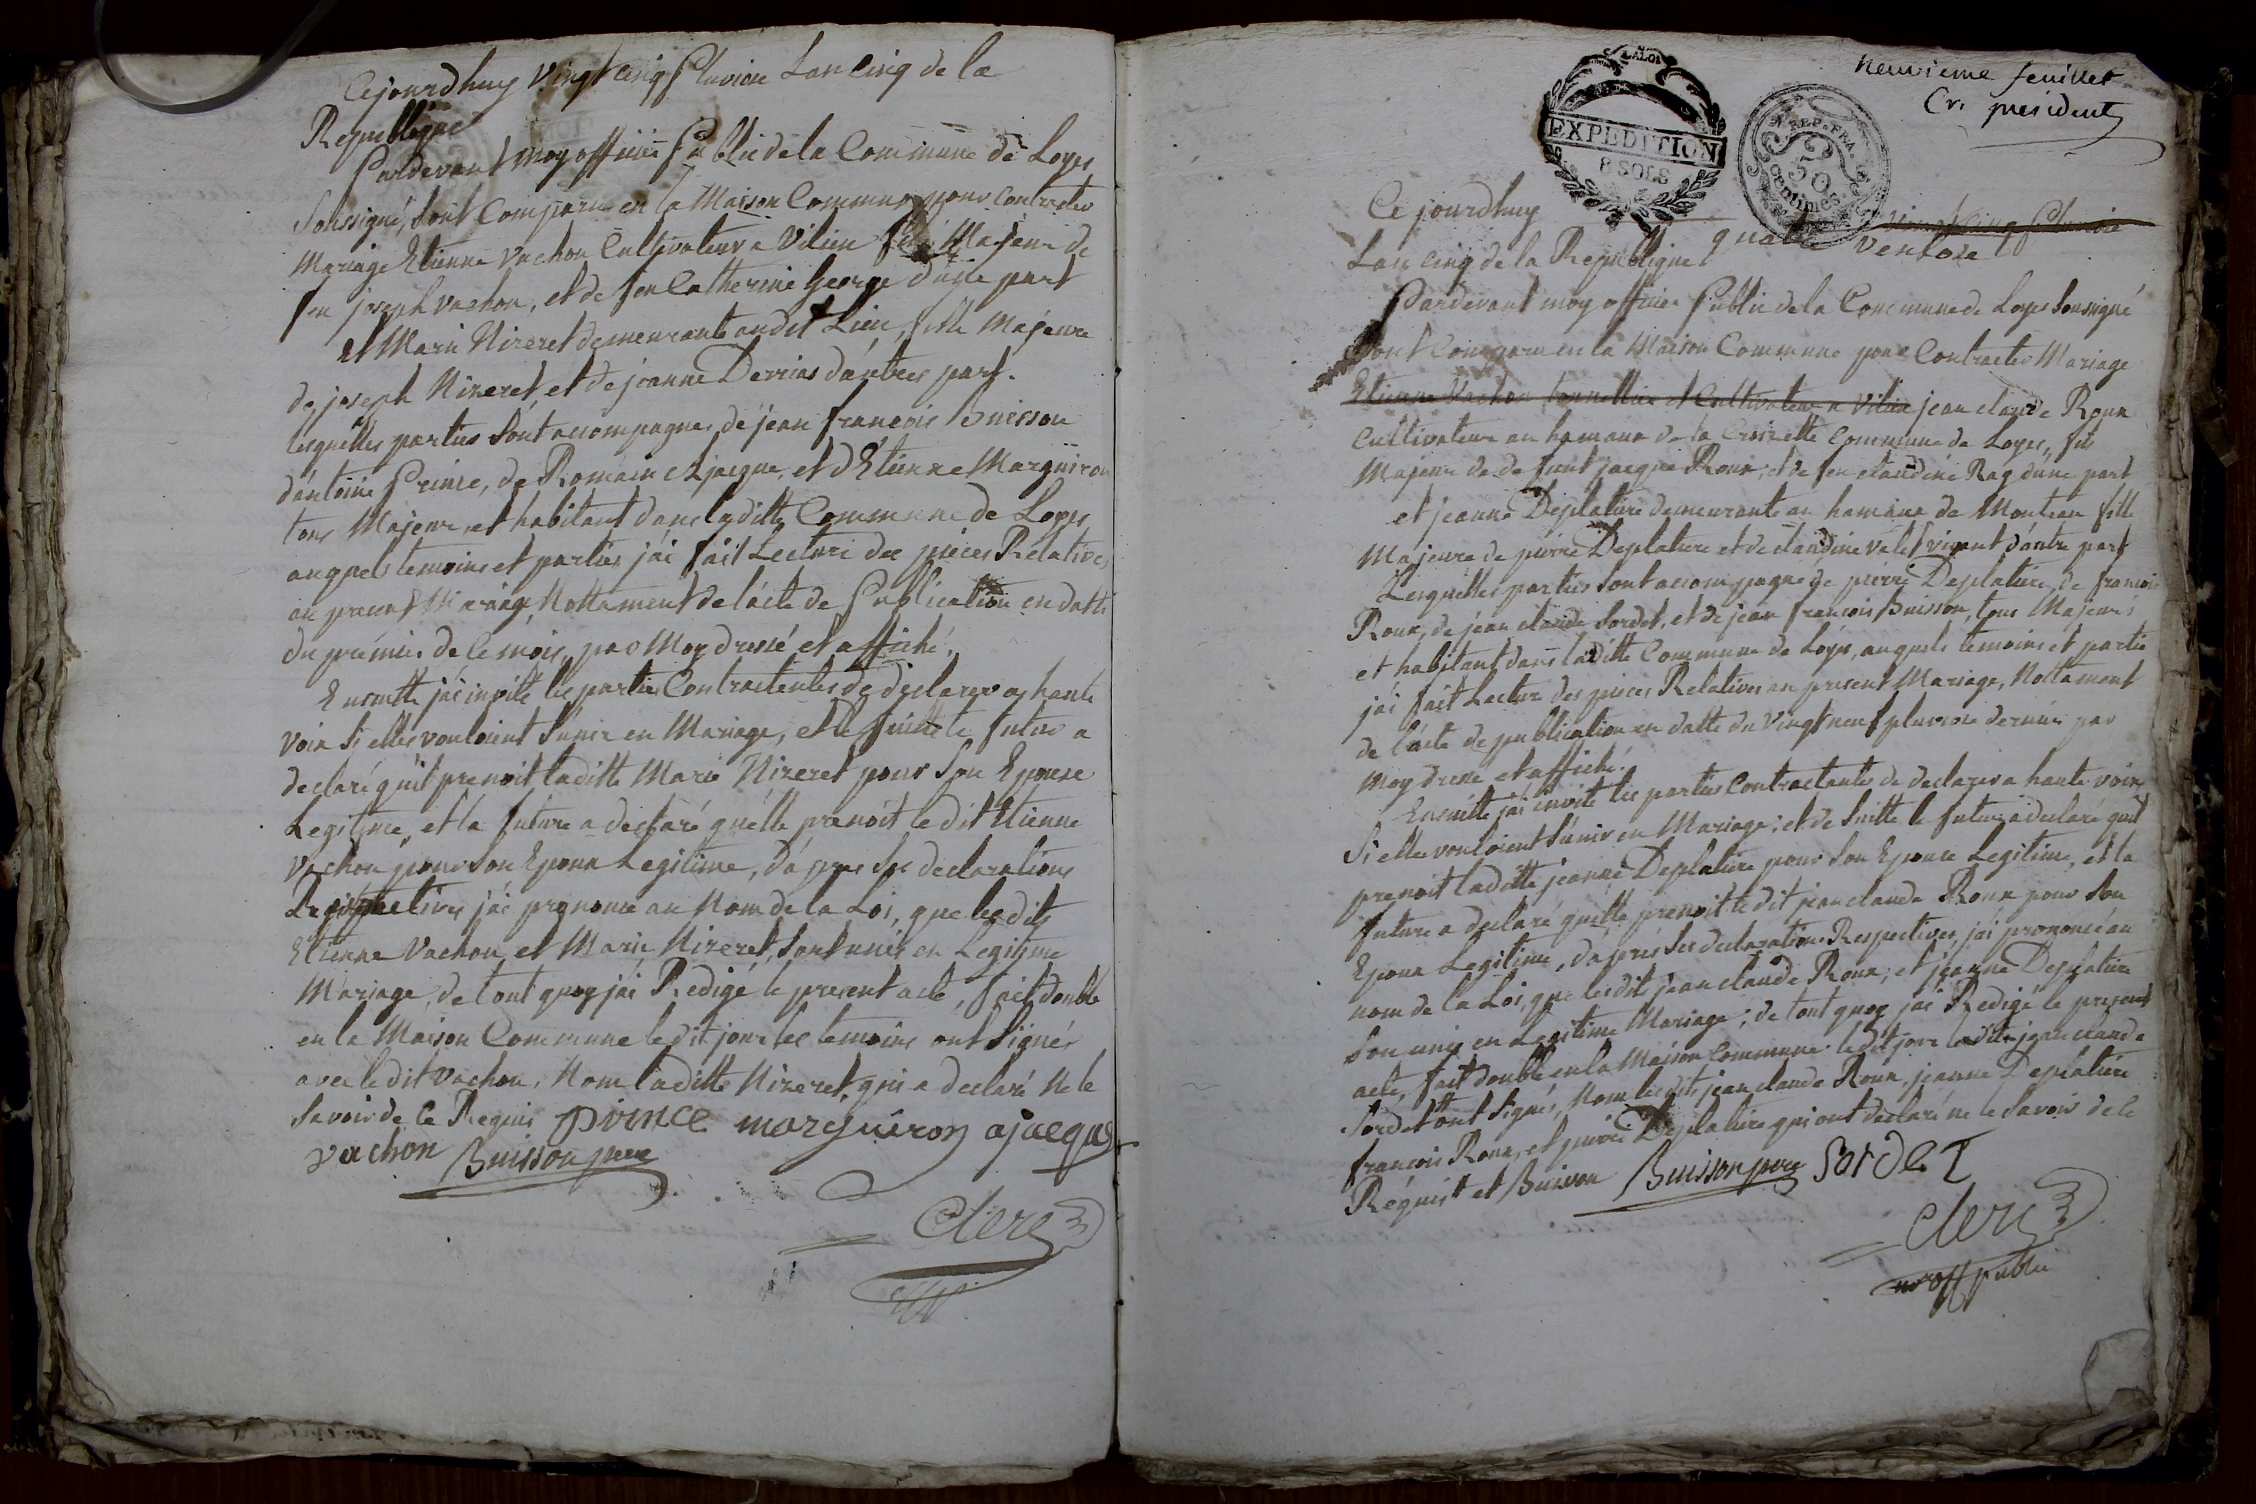 Cejourdhuy vingt cinq Pluviose Lan cinq de la
Republique
Pardevant moy officier Public de la Commune de Loyes
Soussigné, sont Comparu en la Maison Commune pour contracter
Mariage Etienne Vachon Cultivateur a Vilieu fils Majeur de
feu joseph Vachon, et de feu Catherine George d'une part
et Marie Nizeret demeurante au dit Lieu, fille Majeure
de joseph Nizeret, et de jeanne Derrias d'autres part.
lesquelles parties sont accompagnes de jean françois Buisson
d'antoine Prince, de Romain Ajacque, et d'Etienne Marguiron
tous Majeur, et habitant dans laditte Commune de Loyes
auquels temoins et parties j'ai fait Lecture des pieces Relatives
au present Mariage, Nottament de l'acte de Publication en datte
du prémier de ce mois, par Moy dressé et affiché.
Ensuitte j'ai invité les parties Contractentes de declarer a haute
voix si elles vouloient s'unir en Mariage, et de suitte le futur a
declaré qu'il prenoit laditte Marie Nizeret pour son Epouse
Legitime, et la future a declaré quélle prenoit le dit Etienne
Vachon pour son Epoux Legitime, d'apres ses declarations
Respectives j'ai prononcé au Nom de la Loi, que lesdits
Etienne Vachon, et Marie Nizeret, sont unis en Legitime
Mariage, de tout quoy j'ai Redigé le present acte, fait double
en la Maison Commune ledit jour les temoins ont signés
avec ledit Vachon, Nom laditte Nizeret, qui a declaré Ne le
savoir de ce Requis prince marguiron ajacque
vachon Buisson pere
Clerc
neuvieme feuillet
Cr. president
LA LOI
EXPEDITION
8 SOLS
REP. FRA.
50
centimes
Ce jourdhuy quatre vingt cinq Pluviose
Lan cinq de la Republique ventose
Pardevant moy officier Public de la Commune de Loyes soussigné
sont Comparu en la Maison Commune pour Contracter Mariage
Etienne Vachon tonnellier et Cultivateur a Vilieu jean claude Roux
cultivateur au hamaux de la Croizette Commune de Loyes, fils
Majeur de de funt jacque Roux, et de feu claudine Rag d'une part
et jeanne Deplature demeurante au hamaux de Monteau fille
Majeure de pierre Deplature et de claudine Valet vivant d'autre part
Lesquelles parties sont accompagné de pierre Deplature, de françois
Roux, de jean claude Sordet, et de jean françois Buisson, tous Majeurs
et habitant dans laditte Commune de Loyes, auquels temoins et partie
j'ai fait Lecture des pieces Relatives au present Mariage, Nottament
de l'acte de publication en datte du vingt neuf pluviose dernier par
moy dressé et affiché.
Ensuitte j'ai invité les parties Contractantes de declarer a haute voix
si elles vouloient s'unir en Mariage; et de suitte le futur a declaré quil
prenoit laditte jeanne Deplature pour son Epouse Legitime, et la
future a declaré quélle prenoit le dit jean claude Roux pour son
Epoux Legitime, d'après ses declarations Respectives, j'ai prononcé au
nom de la Loi, que lesdit jean claude Roux, et jeanne Deplature
son unis en Legitime Mariage; de tout quoy j'ai Redigé le present
acte, fait double en la Maison Commune ledit jour ledit jean claude
Sordet ont signés, Nom lesdits jean claude Roux, jeanne Deplature
françois Roux, et pierre Deplature qui ont declaré ne le savoir de ce
Réquis et Buisson Buisson pere Sordet
Clerc
off public